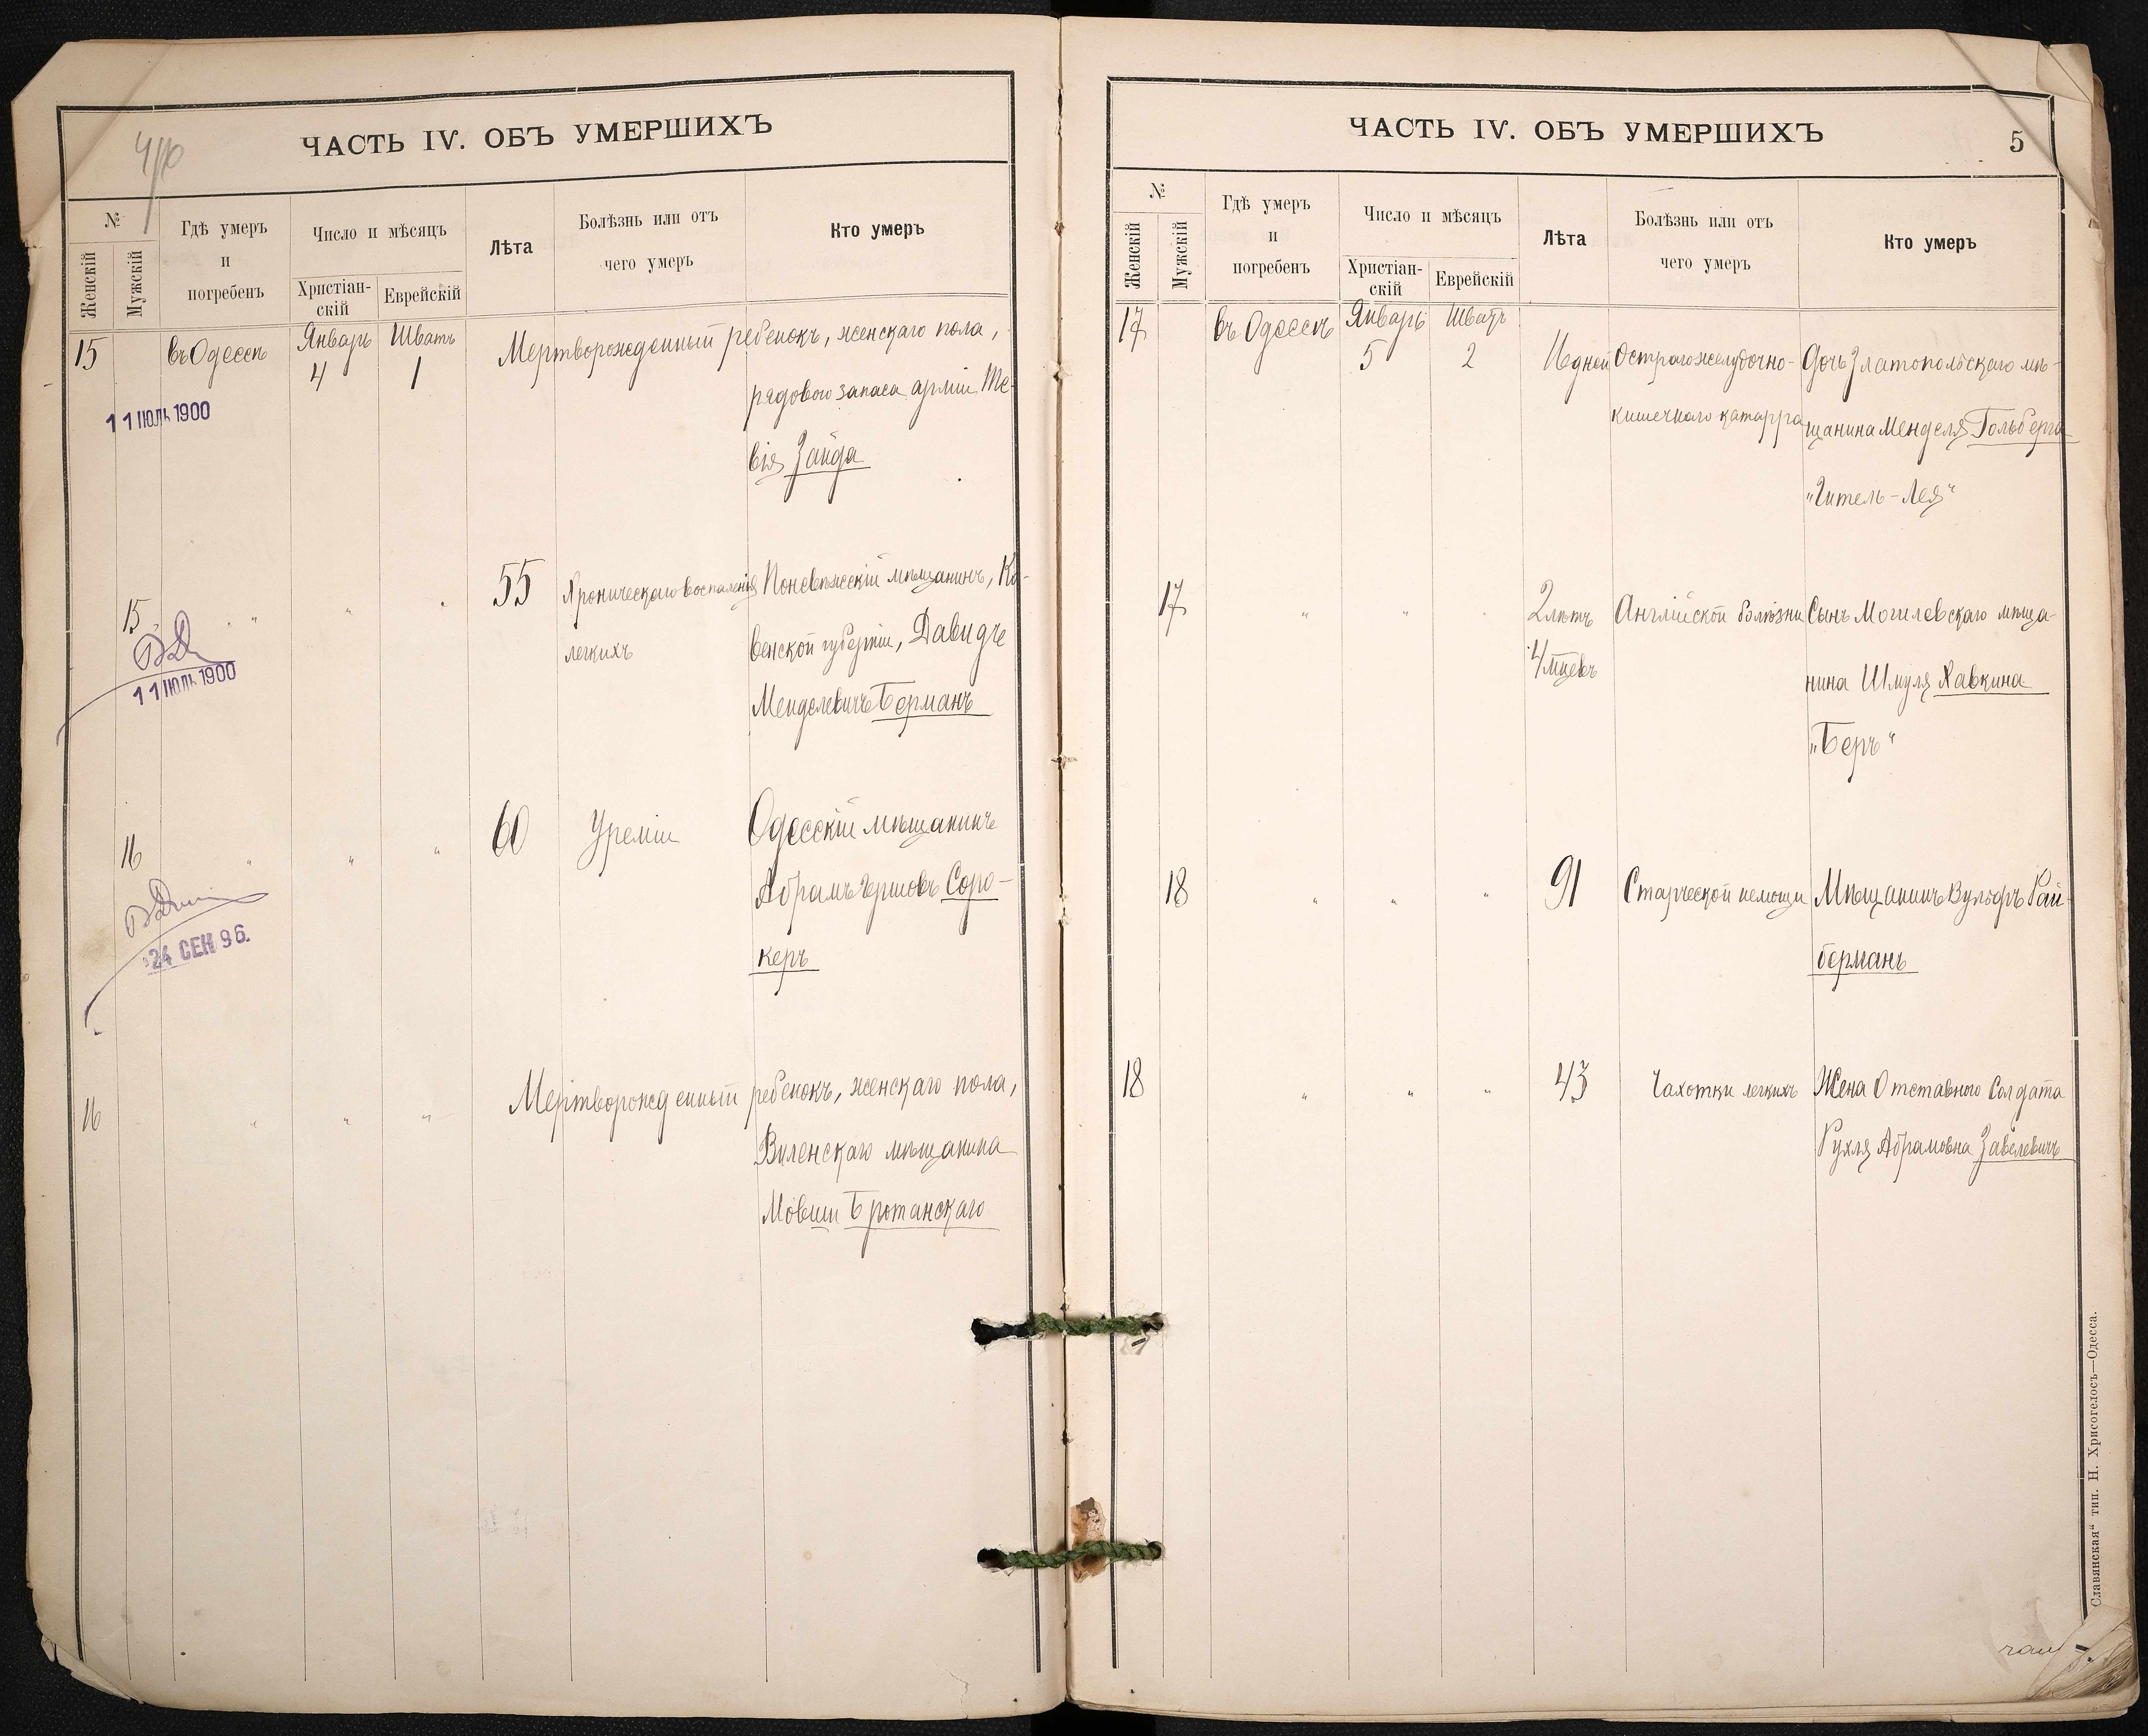 ЧАСТЬ IV. ОБЪ УМЕРШИХЪ
№
Женскій
Мужскій
Гдѣ умеръ
и
погребенъ
Число и мѣсяцъ
Христіан-
скій
Еврейскій
Лѣта
Болѣзнь или отъ
чего умеръ
Кто умеръ
15 въ Одессѣ Январь Шватъ Мертворожденный ребенокъ, женскаго пола,
4 1 рядового запаса арміи Те-
11 ІЮЛЬ 1900
вія Зайда
15 " " " 55 Хроническаго воспаленія Поневѣжскій мѣщанинъ, Ко-
легкихъ венской губерніи, Давидъ
11 ІЮЛЬ 1900
Менделевичъ Берманъ
16 " " " 60 Уреміи Одесскій мѣщанинъ
Абрамъ Гершовъ Соро-
24 СЕН 96.
керъ
16 " " " Мертворожденный ребенокъ, женскаго пола,
Виленскаго мѣщанина
Мовши Бротанскаго
ЧАСТЬ IV. ОБЪ УМЕРШИХЪ
5
№
Женскій
Мужскій
Гдѣ умеръ
и
погребенъ
Число и мѣсяцъ
Христіан-
скій
Еврейскій
Лѣта
Болѣзнь или отъ
чего умеръ
Кто умеръ
17 въ Одессѣ Январь Шватъ
5 2 11 дней Остраго желудочно- Дочь Златопольскаго мѣ-
кишечнаго катарра щанина Менделя Гольберга
"Гитель-Лея"
17 " " " 2 лѣтъ Англійской болѣзни Сынъ Могилевскаго мѣща-
4 мцевъ нина Шмуля Хавкина
"Беръ"
18 " " " 91 Старческой немощи Мѣщанинъ Вульфъ Гай-
берманъ
18 " " " 43 Чахотки легкихъ Жена Отставного Солдата
Рухля Абрамовна Завелевичъ
Славянская" тип. Н. Хрисогелосъ—Одесса.